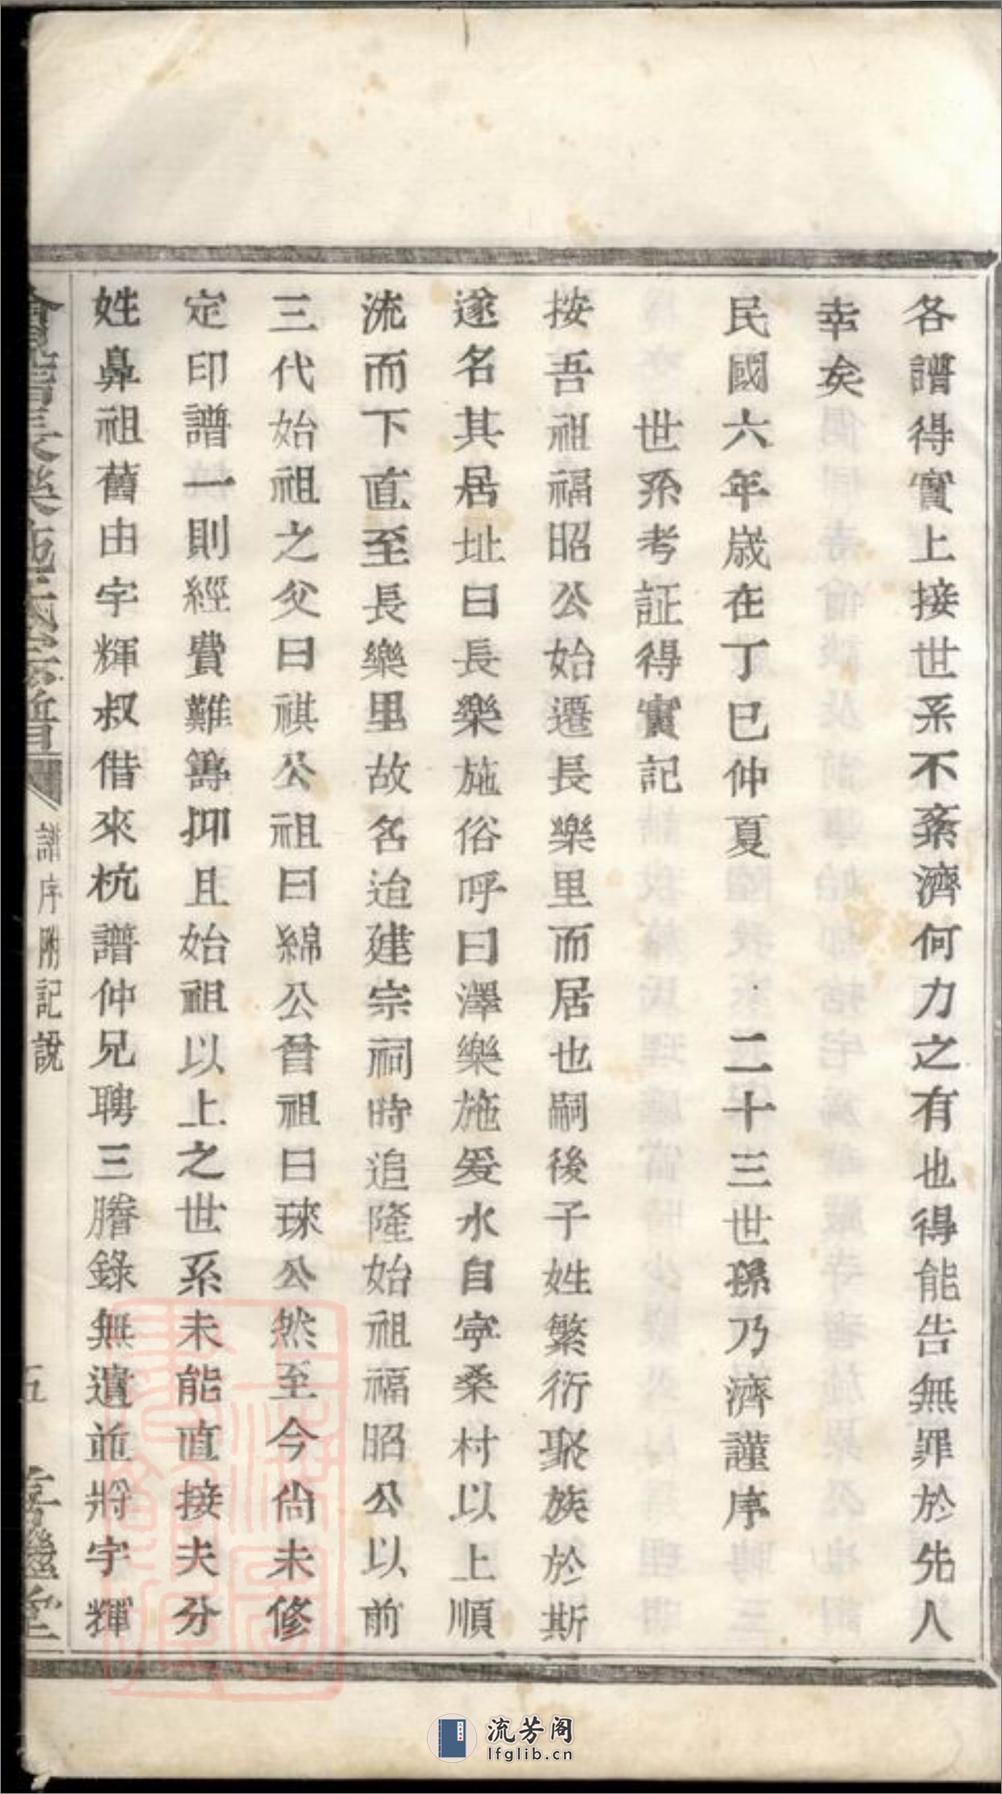 各譜得實上接世系不紊濟何力之有也得能告無罪於先人
幸矣
民國六年歲在丁巳仲夏 二十三世孫乃濟謹序
世系考証得實記
按吾祖福昭公始遷長樂里而居也嗣後子姓繁衍聚族於斯
遂名其居址曰長樂施俗呼曰澤樂施爰水自寧桑村以上順
流而下直至長樂里故名迨建宗祠時追隆始祖福昭公以前
三代始祖之父曰祺公祖曰綿公曾祖曰琜公然至今尙未修
定印譜一則經費難籌抑且始祖以上之世系未能直接夫分
姓鼻祖舊由宇輝叔借來杭譜仲兄聘三謄錄無遺並將宇輝
會稽長樂施氏宗譜 譜序附記說 五 善繼堂
流芳阁
lfglib.cn